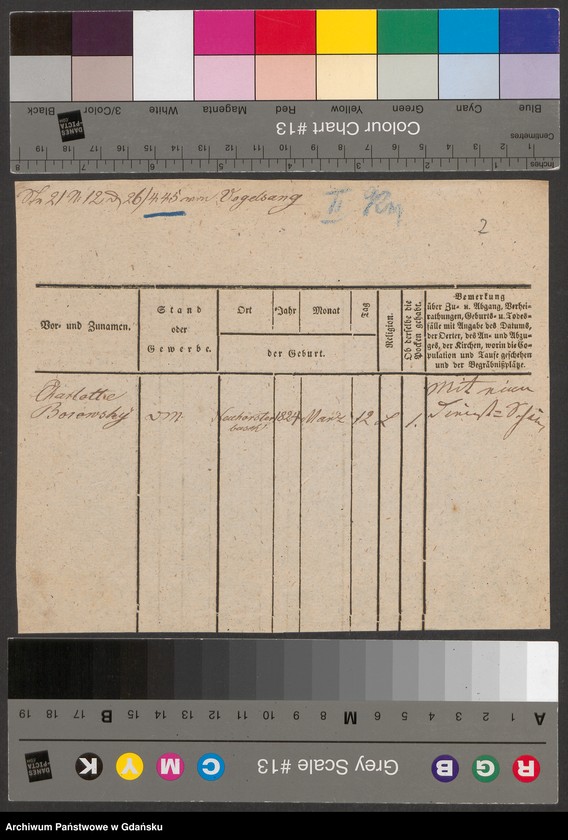 Blue Cyan Green Yellow Red Magenta White 3/Color Black
Colour Chart #13
DANES
PICTA
.COM
Centimetres
1 2 3 4 5 6 7 8 9 10 11 12 13 14 15 16 17 18 19
Inches 1 2 3 4 5 6 7 8
21 N 12 26/4 45 Vogelsang
II
2
Vor- und Zunamen.
Stand
oder
Gewerbe.
Ort Jahr Monat Tag
der Geburt.
Religion.
Ob derselbe die
Pocken gehabt.
Bemerkung
über Zu- u. Abgang, Verhei-
rathungen, Geburts- u. Todes-
fälle mit Angabe des Datums,
der Oerter, des An- und Abzu-
ges, der Kirchen, worin die Co-
pulation und Taufe geschehen
und der Begräbnißplätze.
Charlotte
Borowsky
DM
1824 März 12 L 1.
Mit einem
Dienst-Schein
A 1 2 3 4 5 6 M 8 9 10 11 12 13 14 15 B 17 18 19
R G B
Grey Scale #13
C M Y K
DANES
PICTA
.COM
Archiwum Państwowe w Gdańsku